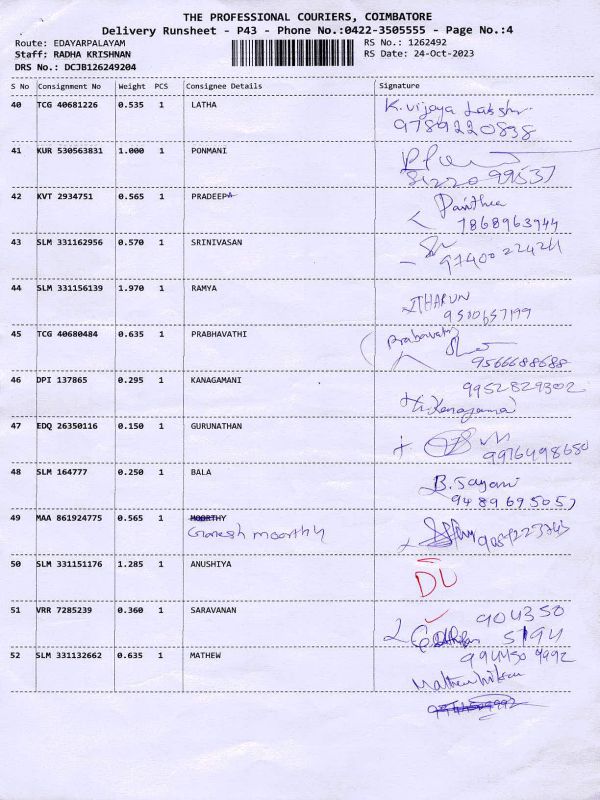 THE PROFESSIONAL COURIERS, COIMBATORE
Delivery Runsheet - P43 - Phone No.:0422-3505555 - Page No.:4
Route: EDAYARPALAYAM RS No.: 1262492
Staff: RADHA KRISHNAN RS Date: 24-Oct-2023
DRS No.: DCJB126249204
S No Consignment No Weight PCS Consignee Details Signature
40 TCG 40681226 0.535 1 LATHA K. vijaya
9789220838
41 KUR 530563831 1.000 1 PONMANI
99537
42 KVT 2934751 0.565 1 PRADEEPA
7868963944
43 SLM 331162956 0.570 1 SRINIVASAN
9740022424
44 SLM 331156139 1.970 1 RAMYA THARUN
9500657199
45 TCG 40680484 0.635 1 PRABHAVATHI Prabavathy
9566688688
46 DPI 137865 0.295 1 KANAGAMANI 9952829302
47 EDQ 26350116 0.150 1 GURUNATHAN
9976498650
48 SLM 164777 0.250 1 BALA B. Sayani
9489695057
49 MAA 861924775 0.565 1 MOORTHY
Ganesh moorthy
50 SLM 331151176 1.285 1 ANUSHIYA DL
51 VRR 7285239 0.360 1 SARAVANAN 904350
5194
52 SLM 331132662 0.635 1 MATHEW 994450 9992